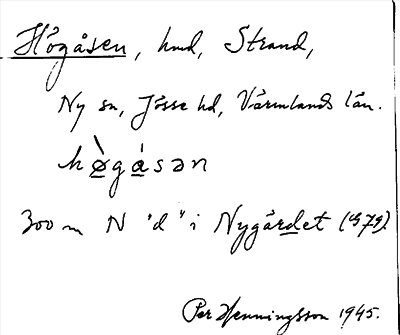 Högåsen, hmd, Strand,
Ny sn, Jösse hd, Värmlands län.
hø̀gásən
300 m N "d" i Nygårdet (G79)
Per Henningsson 1945.